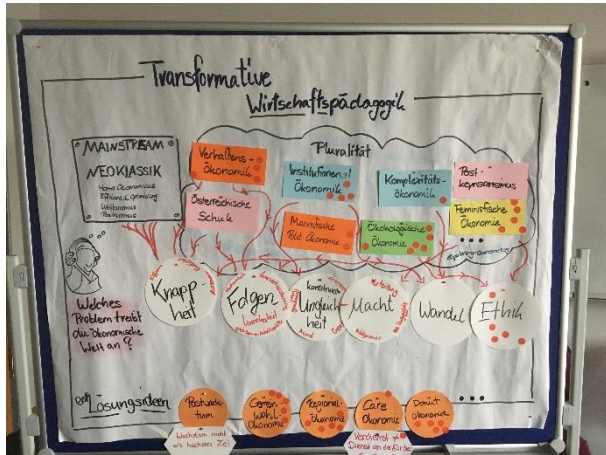 Transformative
Wirtschaftspädagogik
MAINSTREAM
NEOKLASSIK
Homo Oeconomicus
Pluralität
Verhaltens-
Ökonomik
Institutionen
Ökonomik
Komplexitäts-
ökonomik
Post-
keynsianismus
Österreichische
Schule
Marxistische
Pol. Ökonomie
Ökologische
Ökonomie
Feministische
Ökonomie
Welches
Problem treibt
die ökonomische
Welt an?
Knapp
heit
Folgen
Ungleich
heit
Macht
Wandel
Ethik
Lösungsideen
Postwachs
tum
Gemein
wohl-
ökonomie
Regional-
ökonomie
Care
Ökonomie
Donut
ökonomie
Wachstum nicht
als höchstes Ziel